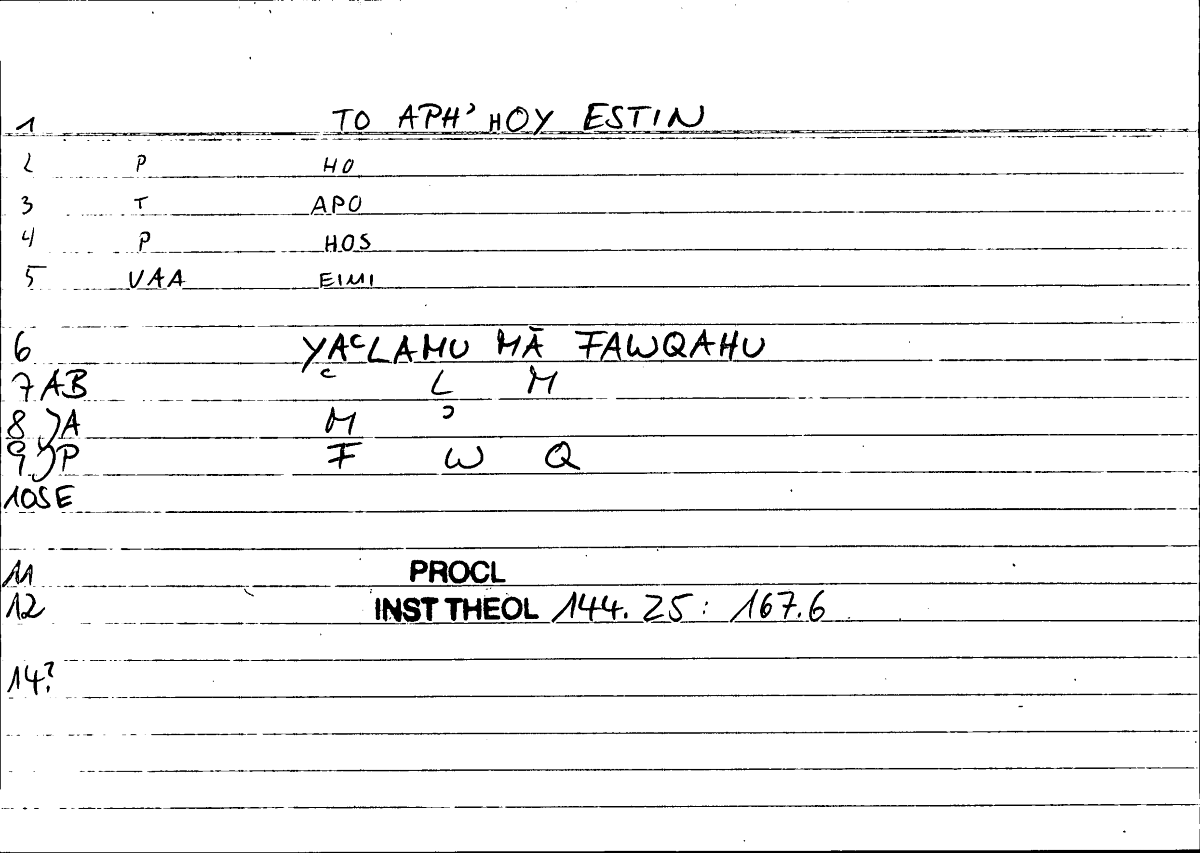 1 TO APH' HOY ESTIN
2 P HO
3 T APO
4 P HOS
5 VAA EIMI
6 YAʿLAMU MĀ FAWQAHU
7 AB ʿ L M
8 )A M ʾ
9 )P F W Q
10 SE
11 PROCL
12 INST THEOL 144.25: 167.6
14?